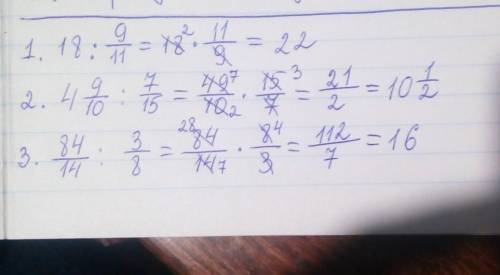 1. 18 : 9/11 = 18 2 · 11/9 = 22
2. 4 9/10 : 7/15 = 49 7/10 2 · 15 3/7 = 21/2 = 10 1/2
3. 84/14 : 3/8 = 28 84/14 7 · 8 4/3 = 112/7 = 16